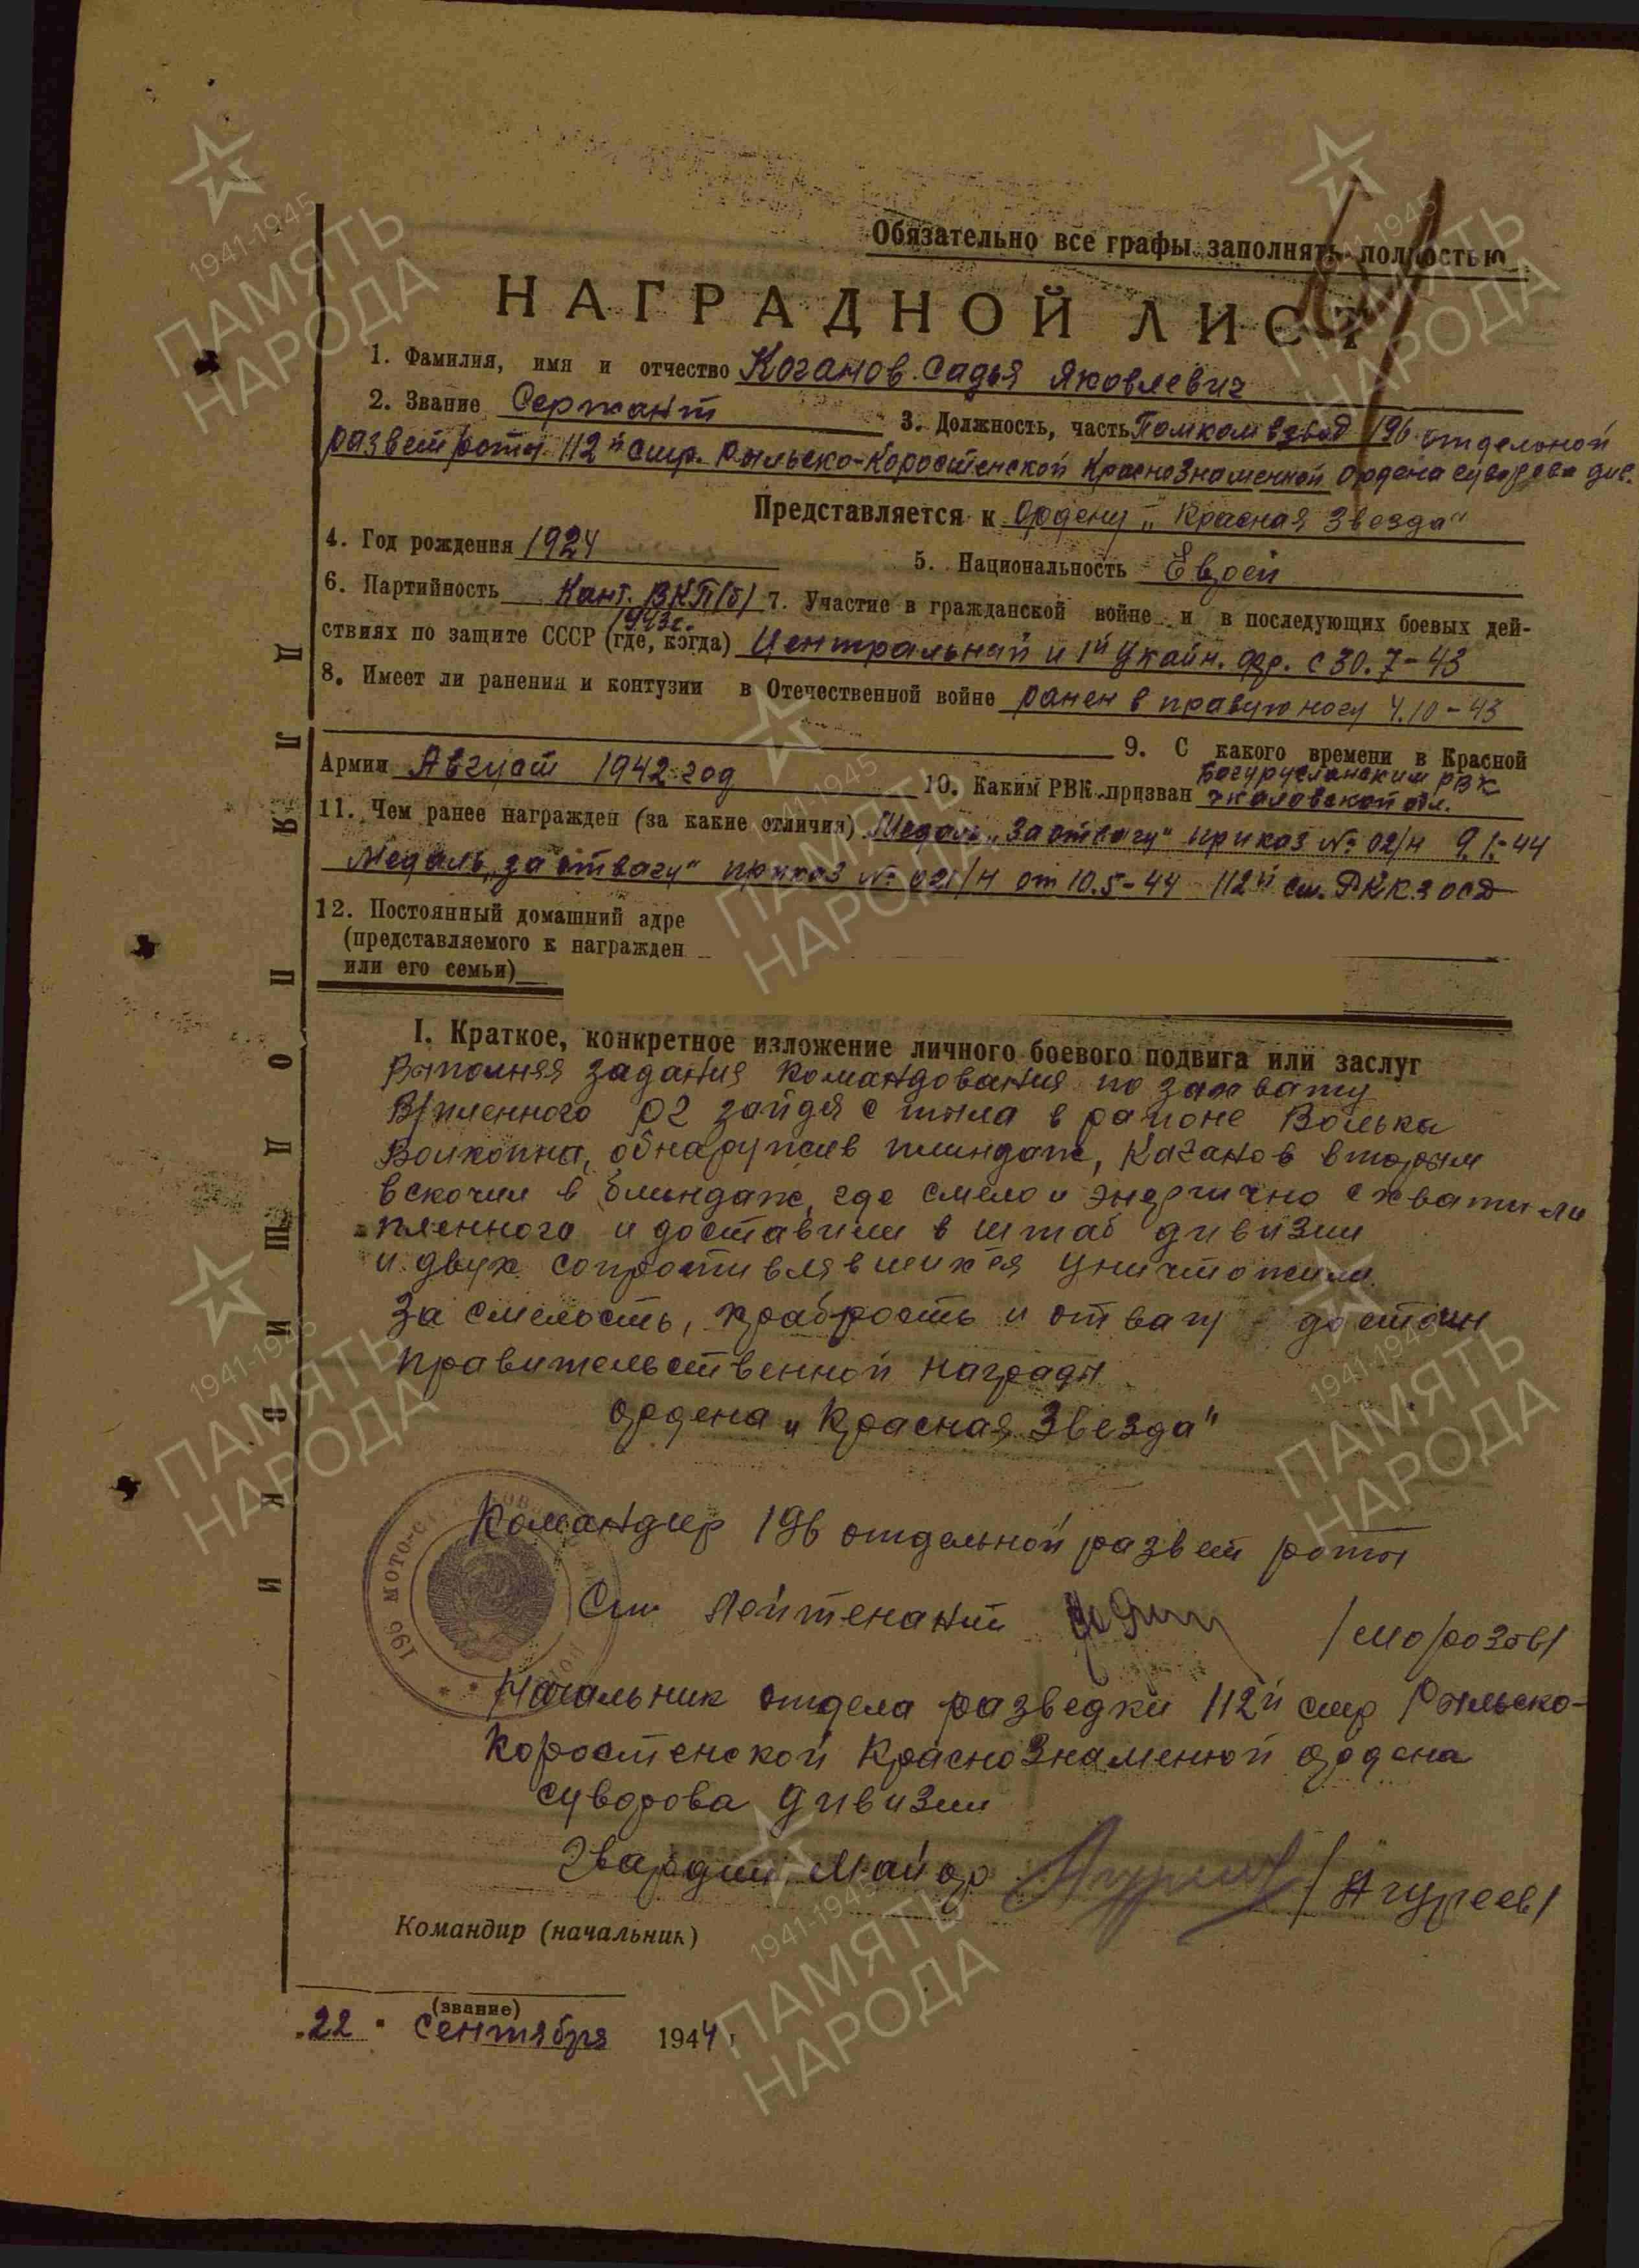 Обязательно все графы заполнять полностью
НАГРАДНОЙ ЛИСТ
1. Фамилия, имя и отчество Коганов Садья Яковлевич
2. Звание Сержант 3. Должность, часть Помкомвзвод 196 отдельной
развет роты 112й стр. Рыльско-Коростенской Краснознаменной ордена суворова див.
Представляется к ордену „Красная Звезда"
4. Год рождения 1924 5. Национальность Еврей
6. Партийность Кант. ВКП(б) 7. Участие в гражданской войне и в последующих боевых дей-
1943г.
ствиях по защите СССР (где, когда) Центральный и 1й Украйн. фр. с 30.7-43
8. Имеет ли ранения и контузии в Отечественной войне ранен в правую ногу 4.10-43
9. С какого времени в Красной
Армии Август 1942 год 10. Каким РВК призван Богурусланским РВК
Чкаловской обл.
11. Чем ранее награжден (за какие отличия) Медаль „За отвагу" приказ № 02/н 9.1.-44
Медаль „за отвагу" приказ № 021/н от 10.5-44 112й
12. Постоянный домашний адре
(представляемого к награжден
или его семьи)
I. Краткое, конкретное изложение личного боевого подвига или заслуг
Выполняя задания командования по захвату
в/пленного зайдя с тыла в районе Волька
обнаружив плиндаж, Каганов вторым
вскочил в блиндаж, где смело и энергично схватили
пленного и доставили в штаб дивизии
и двух сопротивлявшихся уничтожили.
За смелость, храбрость и отвагу достоин
правительственной награды
ордена „Красная Звезда"
Командир 196 отдельной развет роты
Ст. Лейтенант /Морозов/
Начальник отдела разведки 112й стр Рыльско-
Коростенской Краснознаменной ордена
суворова дивизии
Гвардии Майор /Агуреев/
Командир (начальник)
(звание)
„22" сентября 1944 г.
ДЛЯ ПОДШИВКИ
196 МОТО-
1941-1945
ПАМЯТЬ
НАРОДА
1941-1945
ПАМЯТЬ
НАРОДА
1941-1945
ПАМЯТЬ
НАРОДА
1941-1945
ПАМЯТЬ
НАРОДА
1941-1945
ПАМЯТЬ
НАРОДА
1941-1945
ПАМЯТЬ
НАРОДА